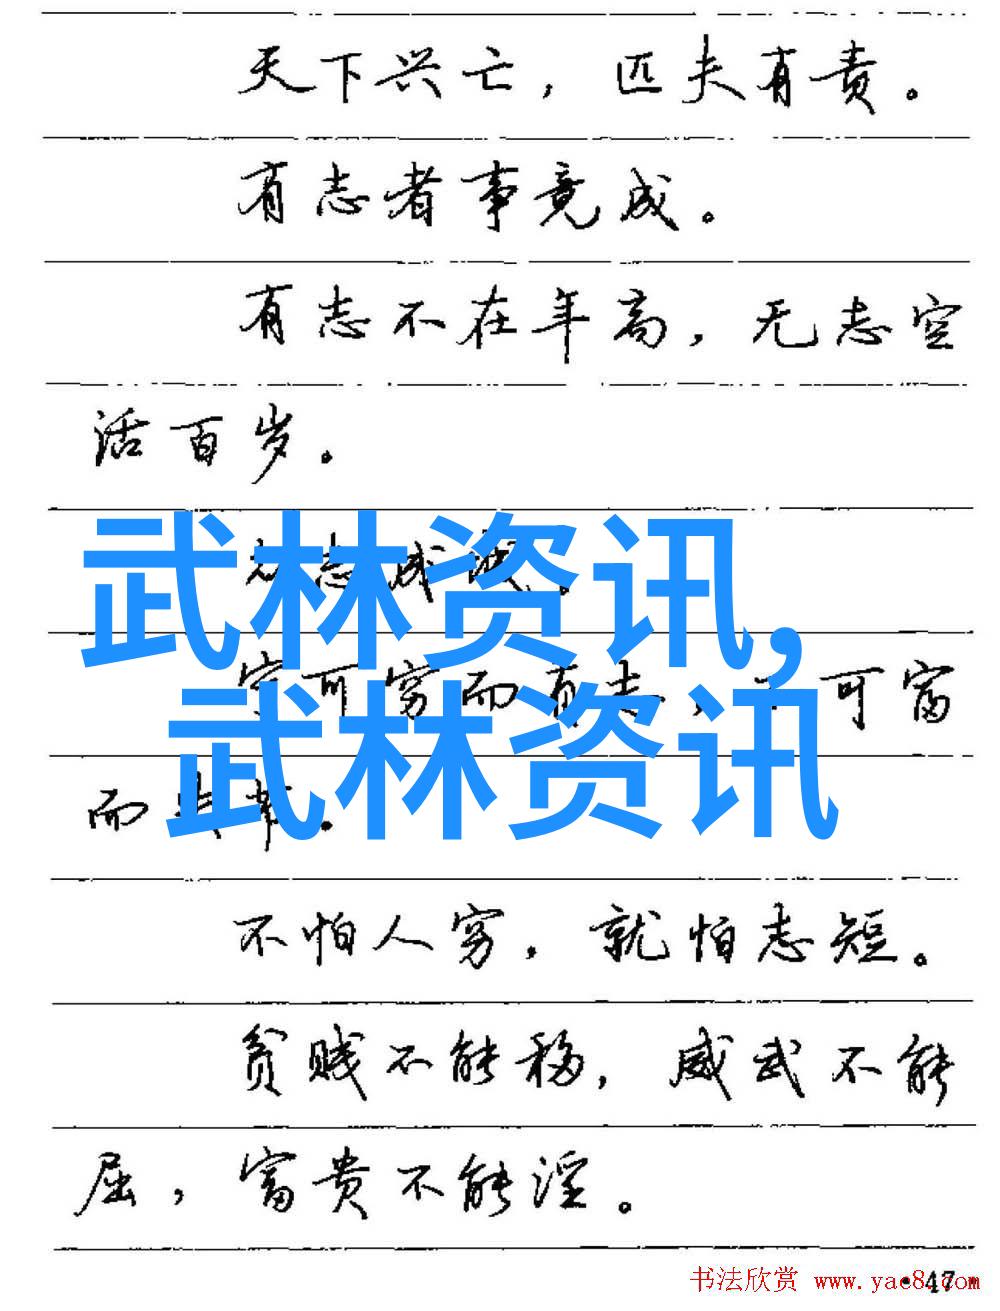 天下兴亡，匹夫有责。
有志者事竟成。
有志不在年高，无志空
活百岁。
志成城。
武林资讯，
宁可穷而有志，可富
武林资讯
而失
不怕人穷，就怕志短。
贫贱不能移，威武不能
屈，富贵不能淫。
书法欣赏 www.yac8.com
·47·